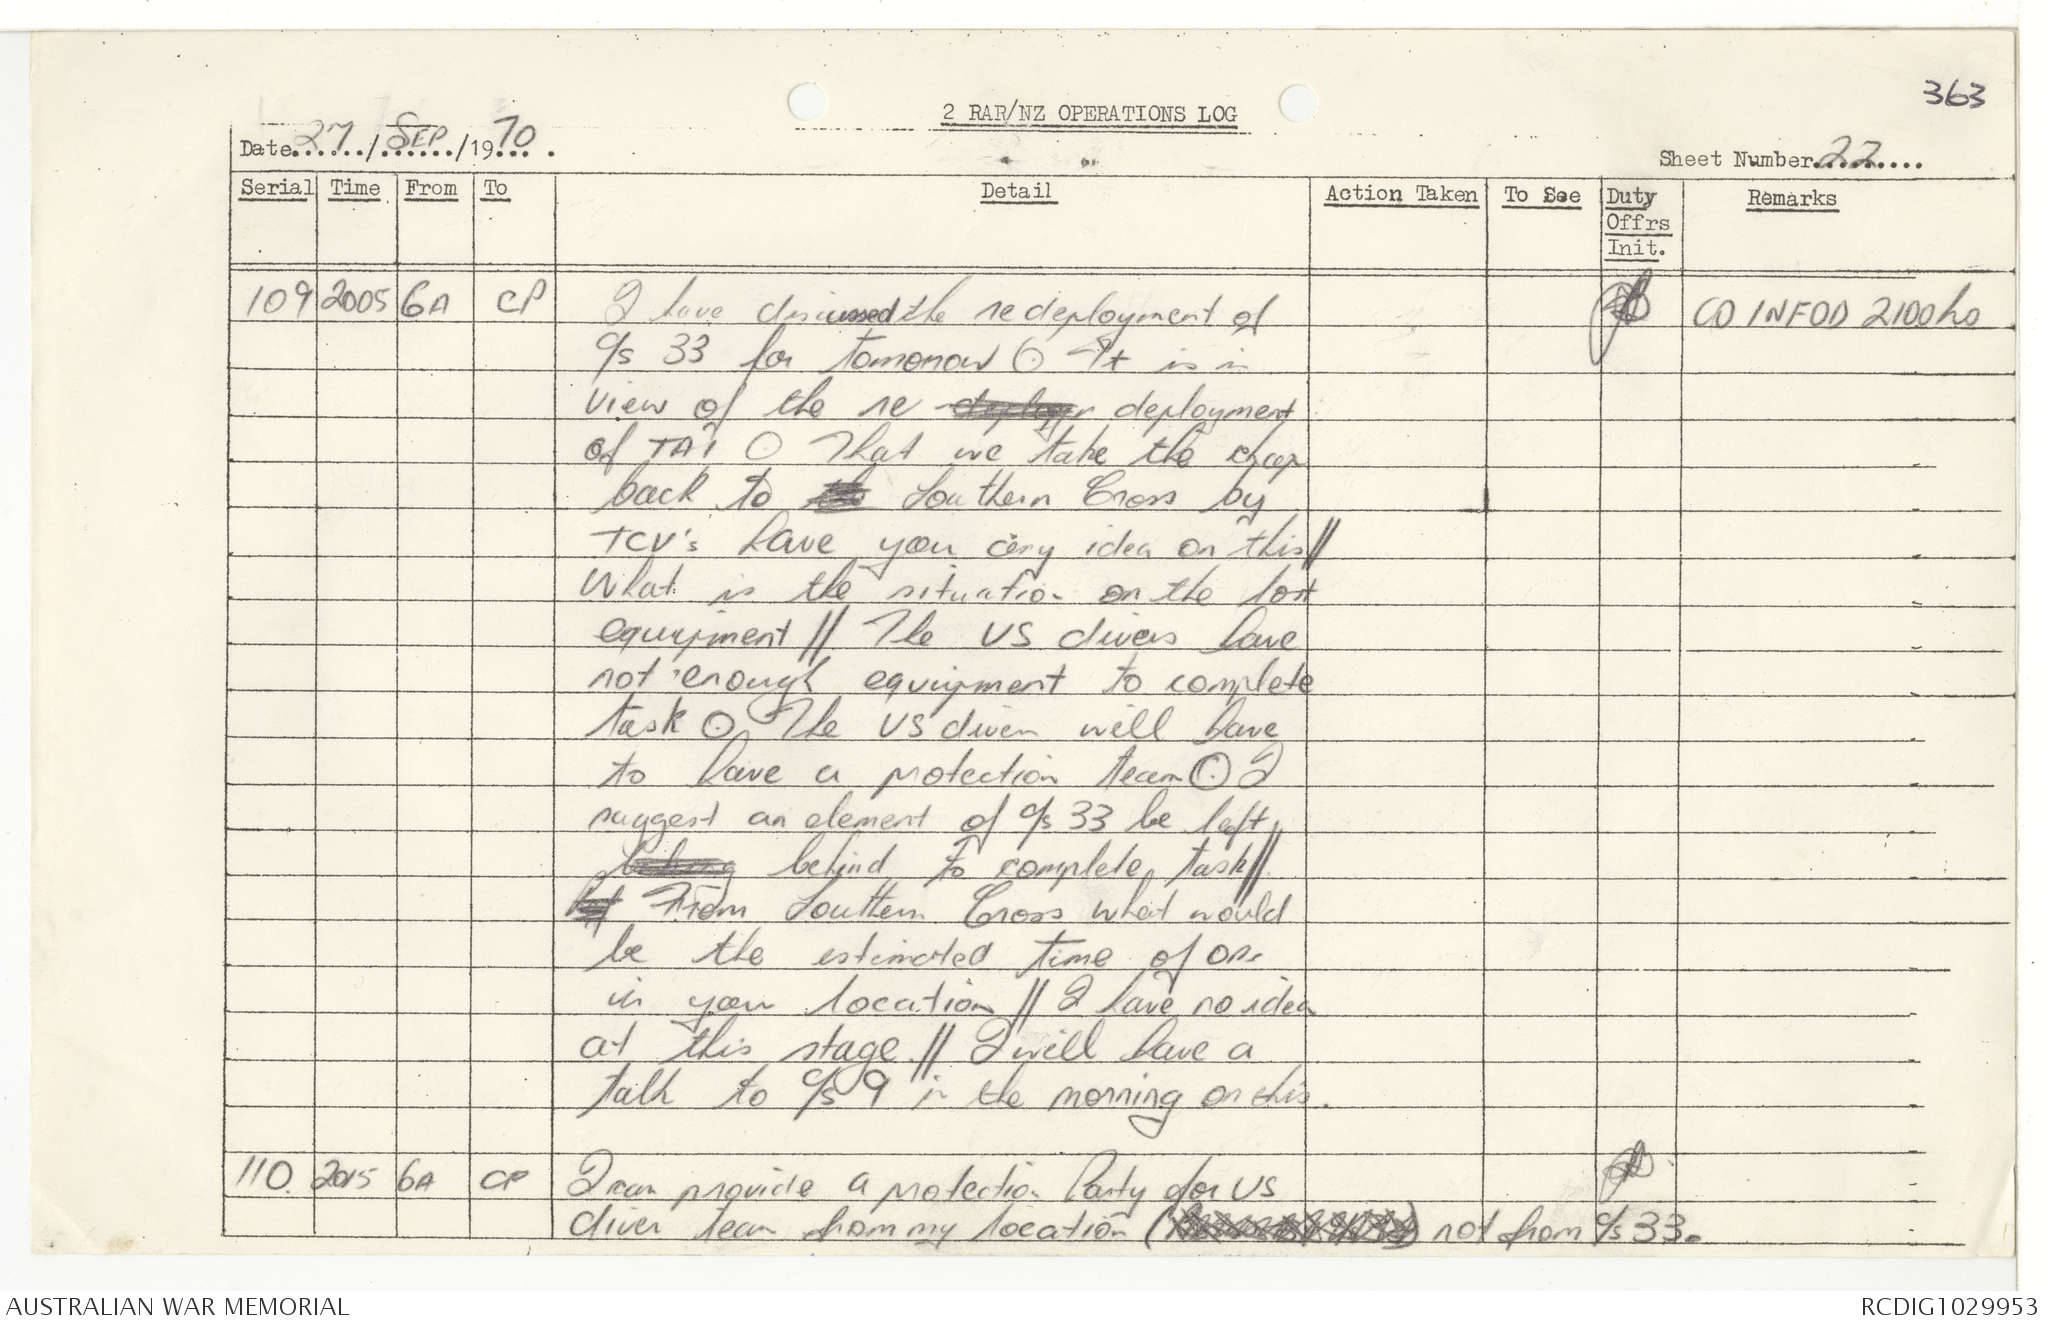 363
2 RAR/NZ OPERATIONS LOG
Date 27/SEP/1970.
Sheet Number 22
Serial Time From To Detail Action Taken To See Duty Offrs Init. Remarks
109 2005 6A CP I have discussed the redeployment of CO INFOD 2100h
c/s 33 for tomorrow ⊙ It is in
view of the re deployment
of TAI ⊙ That we take the
back to Southern Cross by
TCV's have you any idea on this//
What is the situation on the lost
equipment // The US divers have
not enough equipment to complete
task ⊙ The US divers will have
to have a protection team ⊙ I
suggest an element of c/s 33 be left
behind to complete task//
From Southern Cross what would
be the estimated time of
in your location // I have no idea
at this stage. // I will have a
talk to c/s 9 in the morning on this.
110. 2015 6A CP I can provide a protection Party for US
diver team from my location ( ) not from c/s 33.
AUSTRALIAN WAR MEMORIAL
RCDIG1029953